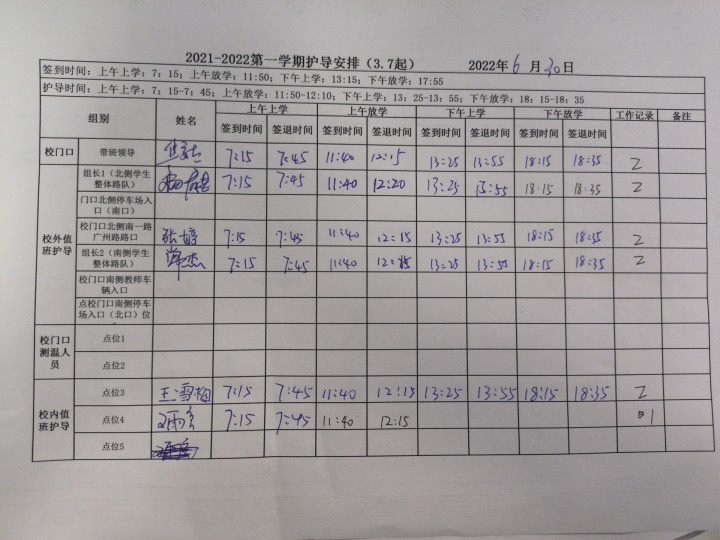 2021-2022第一学期护导安排（3.7起） 2022年6月30日
签到时间：上午上学：7：15；上午放学：11:50；下午上学：13:15；下午放学：17:55
护导时间：上午上学：7：15-7：45；上午放学：11:50-12:10；下午上学：13：25-13：55；下午放学：18：15-18：35
组别 姓名 上午上学 上午放学 下午上学 下午放学 工作记录 备注
签到时间 签退时间 签到时间 签退时间 签到时间 签退时间 签到时间 签退时间
校门口 带班领导 7:15 7:45 11:40 12:15 13:25 13:55 18:15 18:35 2
校外值班护导
组长1（北侧学生整体路队） 7:15 7:45 11:40 12:20 13:25 13:55 18:15 18:35 2
门口北侧停车场入口（南口）
校门口北侧南一路广州路路口 张婷 7:15 7:45 11:40 12:15 13:25 13:55 18:15 18:35 2
组长2（南侧学生整体路队） 7:15 7:45 11:40 12:15 13:25 13:55 18:15 18:35 2
校门口南侧教师车辆入口
点校门口南侧停车场入口（北口）位
校门口测温人员
点位1
点位2
校内值班护导
点位3 王雪梅 7:15 7:45 11:40 12:15 13:25 13:55 18:15 18:35 2
点位4 7:15 7:45 11:40 12:15 1
点位5